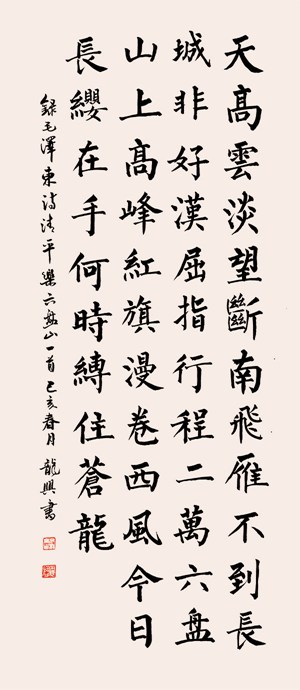 天高雲淡望斷南飛雁不到長
城非好漢屈指行程二萬六盘
山上高峰紅旗漫卷西風今日
長纓在手何時縛住蒼龍
錄毛澤東詩清平樂六盘山一首己亥春月龍興書